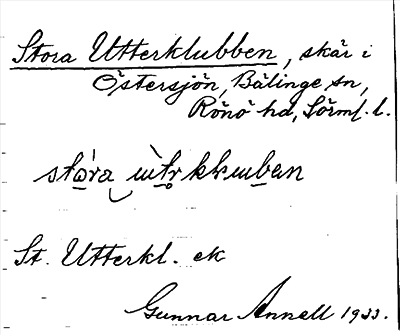 Stora Utterklubben, skär i
Östersjön, Bälinge sn,
Rönö hd, Sörml. l.
stɷ̀ra ɯ̀tr̥kḷɯben
St. Utterkl. ek
Gunnar Annell 1933.